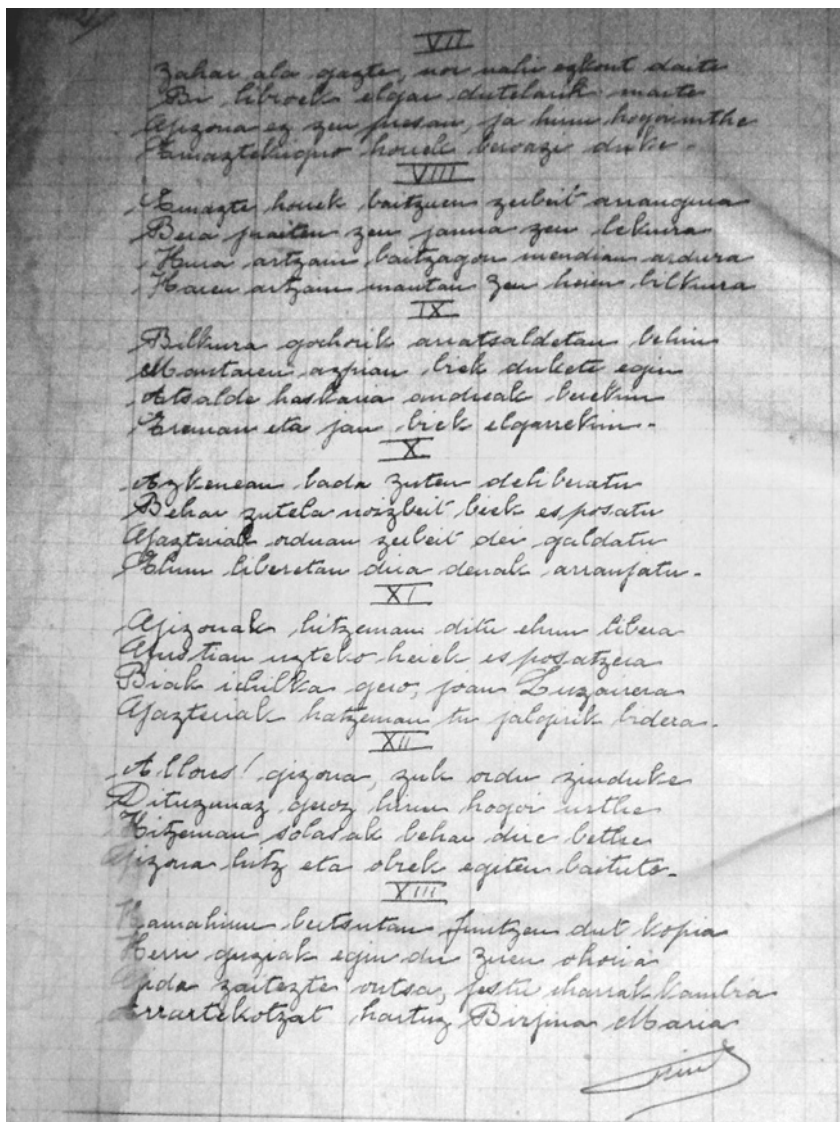 VII
Zahar ala gazte, nor nahi ezkont daite
Bi libroek elgar dutelarik maite
Gizona ez zen presan, ja hirur hogoi urthe
Emaztekiguo hourek beroazi duke.
VIII
Emazte hourek baitzuen zerbeit arrangura
Bera juaiten zen janna zen lekura
Hura artzain baitzagon mendian ardura
Haren artzain mantan zen heien bilkura
IX
Bilkura gochorik arratsaldetan behin
Mantaren azpian biek dukete egin
Atsalde haskaria andreak berekin
Ereman eta jan biek elgarrekin.
X
Azkenean bada zuten deliberatu
Behar zutela noizbeit biek esposatu
Gazteriak orduan zerbeit dei galdatu
Ehun liberetan dira denak arranjatu.
XI
Gizonak hitzeman ditu ehun libera
Gustian uzteko heiek esposatzera
Biak ichilka gero, joan Luzairera
Gazteriak hatzeman tu jalgirik bidera.
XII
Allons! gizona, zuk ordu zinduke
Dituzunaz geroz hirur hogoi urthe
Hitzeman solasak behar dire bethe
Gizona hitz eta obrek egiten baitute.
XIII
Hamahirur bertsutan finitzen dut kopia
Herri guziak egin du zuen ohoria
Gida zaitezte ontsa, pestu charrak kambia
Arrartekotzat hartuz Birjina Maria
Fin